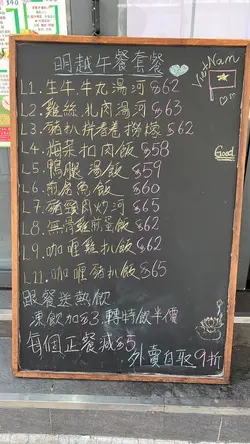 明越午餐套餐
VietNam
L1. 生牛牛丸湯河 $62
L2. 雞絲扎肉湯河 $63
L3. 豬扒拼春卷撈檬 $62
L4. 梅菜扣肉飯 $58
Good
L5. 鴨腿湯飯 $59
L6. 煎倉魚飯 $60
L7. 豬頸肉炒河 $65
L8. 無骨雞煎蛋飯 $62
L9. 咖喱雞扒飯 $62
L11. 咖喱豬扒飯 $65
跟餐送熱飲
凍飲加$3, 轉特飲半價
每個正餐減$5
外賣自取9折